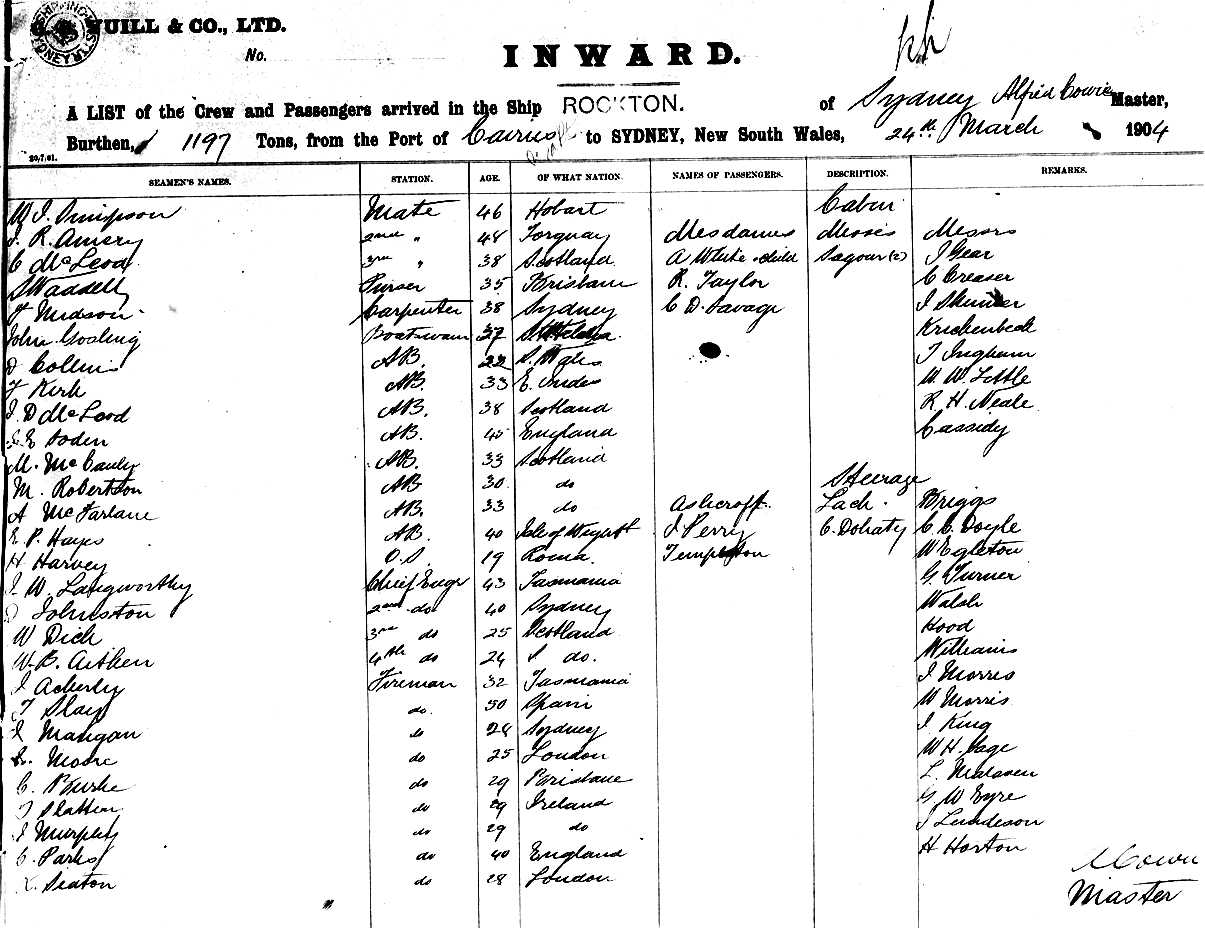 UILL & CO., LTD.
No.
INWARD.
A LIST of the Crew and Passengers arrived in the Ship ROCKTON. of Sydney Alfred Cowie Master,
Burthen, 1197 Tons, from the Port of Cairns to SYDNEY, New South Wales, 24th March 1904
20.7.01.
SEAMEN'S NAMES. STATION. AGE. OF WHAT NATION. NAMES OF PASSENGERS. DESCRIPTION. REMARKS.
Cabin
W J Simpson Mate 46 Hobart
J. R. Amery 2nd " 48 Torquay Mesdames Misses Messrs
C McLeod 3rd " 38 Scotland A White & child Sagour (2) J Gear
S Waddell Purser 35 Brisbane R. Taylor C Creaser
F Hudson Carpenter 38 Sydney C D. Savage J Skinner
John Gosling Boatswain 37 Krichenbeck
D Collins AB. 22 S. Wales T Ingham
F Kirk AB. 33 E. Indes W. W. Little
J. D McLeod AB. 38 Scotland R H. Neale
E Soden AB. 45 England Cassidy
M. McCauly AB. 33 Scotland
Steerage
M. Robertson AB 30 do
A McFarlane AB. 33 do Ashcroft Lach. Briggs
E P. Hayes AB. 40 Isle of Weight J Perry C. Dohaty C. C. Doyle
H Harvey O.S. 19 Roma Templeton W Egleton
J. W. Langworthy Chief Engr 43 Tasmania G. Turner
J Johnston 2nd do 40 Sydney Walsh
W Dick 3rd do 25 Scotland Hood
W. B. Aitken 4th do 24 S do. Williams
J Ackerly Fireman 32 Tasmania J Morris
T Slay do. 50 Spain W Morris
J Mangan do 28 Sydney J King
Moore do 25 London W H. Sage
C. Burke do 29 Brisbane L. Malssen
J Slattery do 29 Ireland G W Eyre
J Murphy do 29 do J Lundeson
C. Parks do 40 England H Horton
Seaton do 28 London
A Cowie
Master